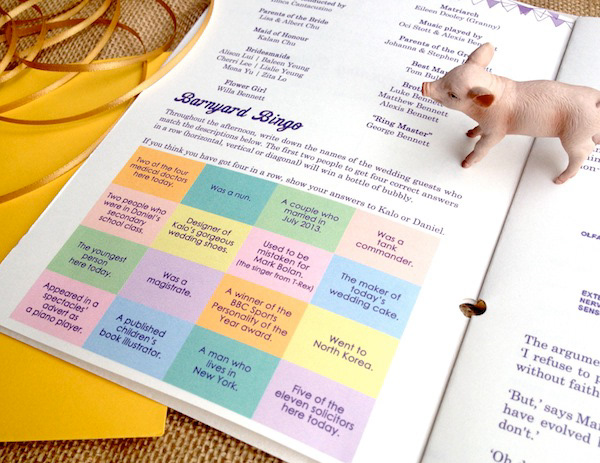 conducted by
Parents of the Bride
Lisa & Albert Chu
Maid of Honour
Kalam Chu
Bridesmaids
Alison Lui / Baleen Yeung
Cheri Lee / Lislie Yeung
Mona Yu / Zita Lo
Flower Girl
Willa Bennett
Matriarch
Eileen Dooley (Granny)
Music played by
Oci Stott & Alexis
Parents of the
Johanna & Stephen
Best
Tom
Luke
Matthew Bennett
Alexis Bennett
"Ring Master"
George Bennett
Barnyard Bingo
Throughout the afternoon, write down the names of the wedding guests who
match the descriptions below. The first two people to get four correct answers
in a row (horizontal, vertical or diagonal) will win a bottle of bubbly.
If you think you have got four in a row, show your answers to Kalo or Daniel.
Two of the four
medical doctors
here today.
Was a nun.
A couple who
married in
July 2013.
Was a
tank
commander.
Two people who
were in Daniel's
secondary
school class.
Designer of
Kalo's gorgeous
wedding shoes.
Used to be
mistaken for
Mark Bolan.
(the singer from T-Rex)
The maker of
today's
wedding cake.
The youngest
person
here today.
Was a
magistrate.
A winner of the
BBC Sports
Personality of the
Year award.
Went to
North Korea.
Appeared in a
spectacles'
advert as
a piano player.
A published
children's
book illustrator.
A man who
lives in
New York.
Five of the
eleven solicitors
here today.
The argume
'I refuse to p
without faith
'But,' says Mar
have evolved b
don't.'